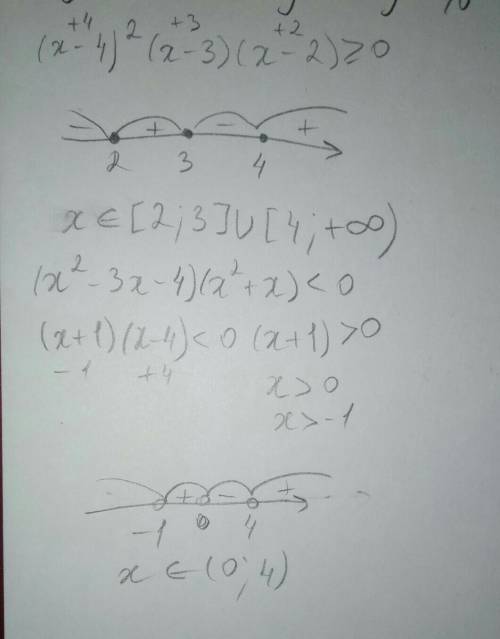 +4 +3 +2
(x-4)² (x-3)(x-2)≥0
- + - +
2 3 4
x ∈ [2;3]∪[4;+∞)
(x²-3x-4)(x²+x)<0
(x+1)(x-4)<0 (x+1)>0
-1 +4
x>0
x>-1
- + - +
-1 0 4
x ∈ (0;4)